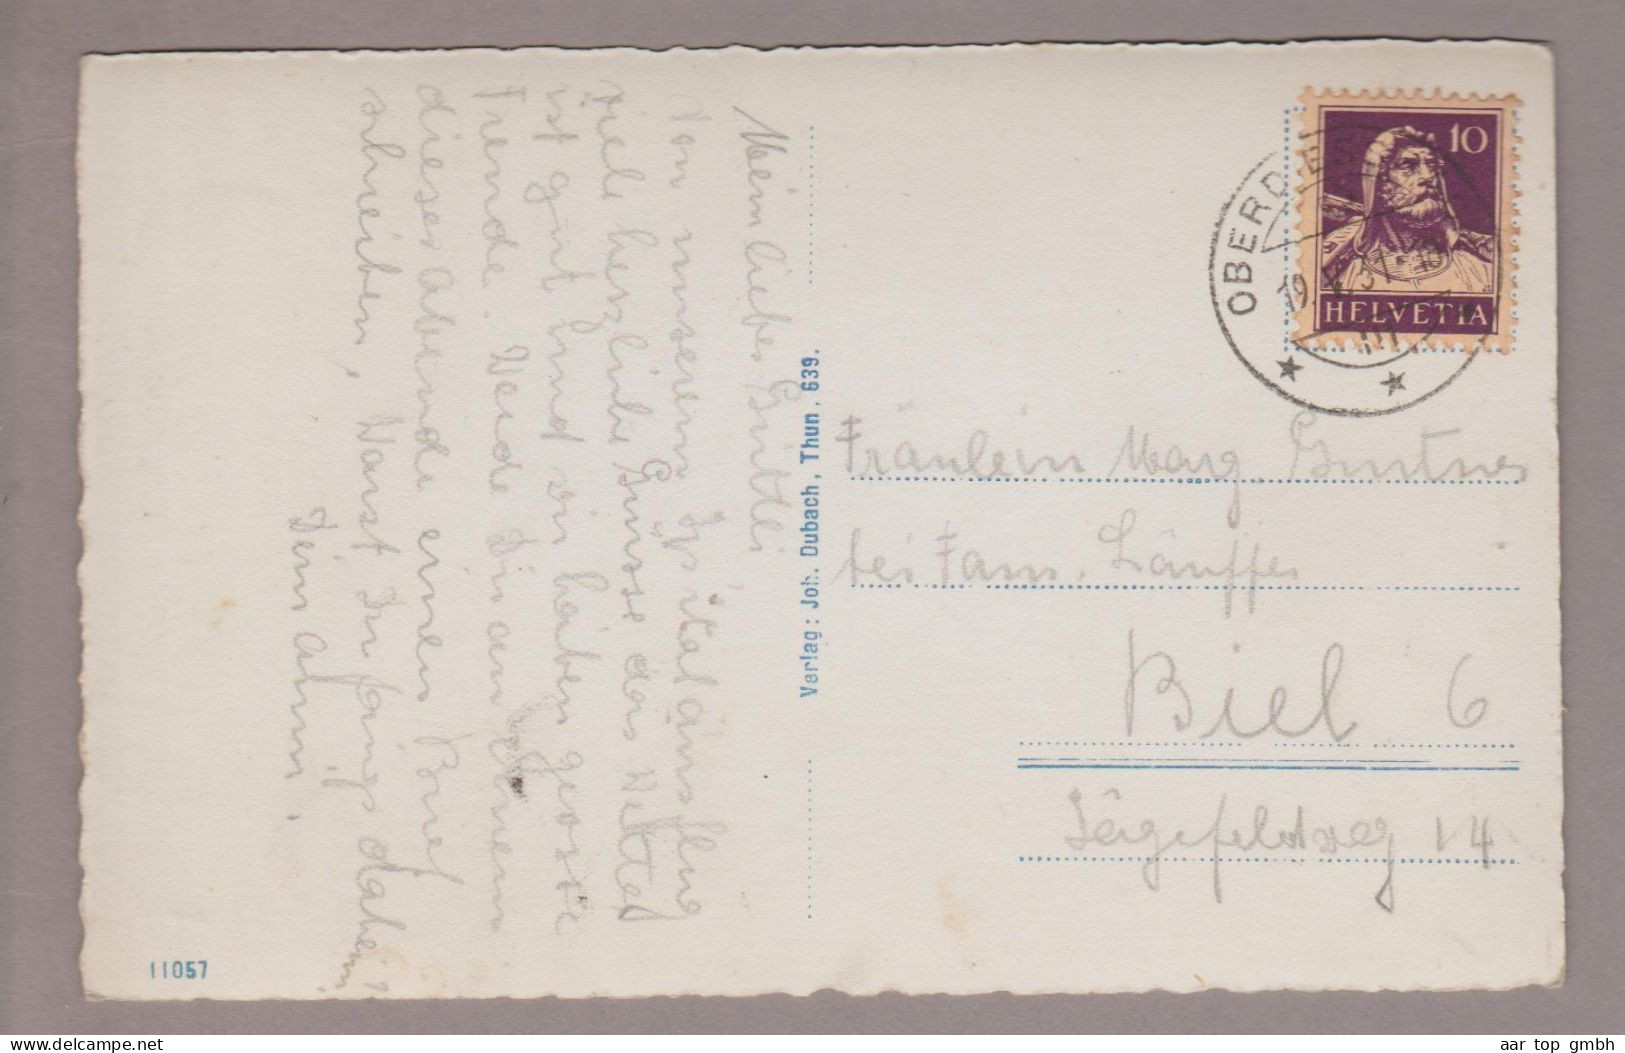 Mein liebes Gritli
Von unserem Spitalausflug
viele herzliche Grüsse das Wetter
ist gut und wir haben grosse
Freude. Werde Dir an einem
dieser Abende einen Brief
schreiben, Warst Du Pfings daheim?
Dein
Verlag: Joh. Dubach, Thun. 639.
11057
10
HELVETIA
OBERDIES
19. 31-18
Fräulein Marg.
bei Fam. Läuffer
Biel 6
14
aar top gmbh
www.delcampe.net